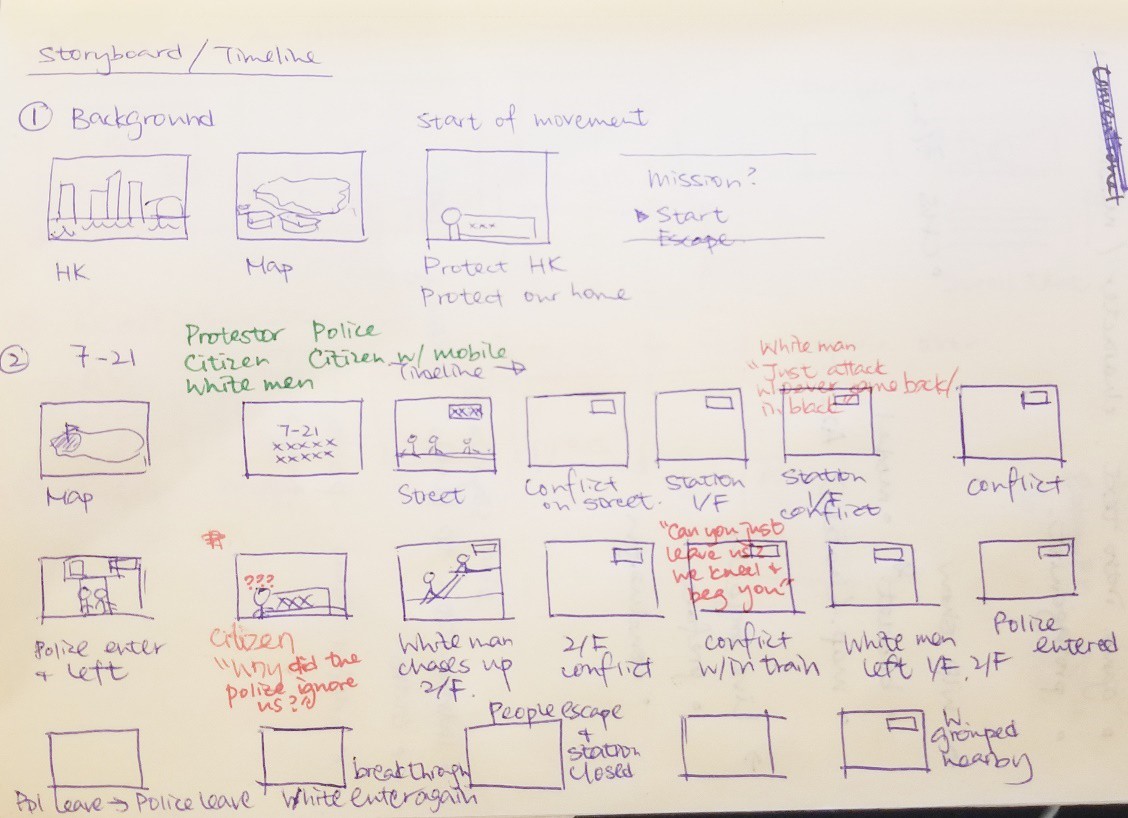 Storyboard / Timeline
① Background
Start of movement
HK
Map
xxx
Protect HK
Protect our home
Mission?
Start
Escape
② 7-21
Protestor Police
Citizen Citizen w/ mobile
White men
Timeline →
White man
"Just attack
in black"
Map
7-21
xxxxx
xxxxx
xxxx
Street
Conflict
on street.
Station
1/F
Station
1/F
conflict
Conflict
Police enter
+ left
???
xxx
Citizen
"Why did the
police ignore
us?"
White man
chases up
2/F.
2/F
conflict
"Can you just
leave us?
We kneel +
beg you"
conflict
w/in train
White men
left 1/F. 2/F
Police
entered
Ppl leave → Police leave
breakthrough
White enter again
People escape
+
station
closed
W.
grouped
nearby